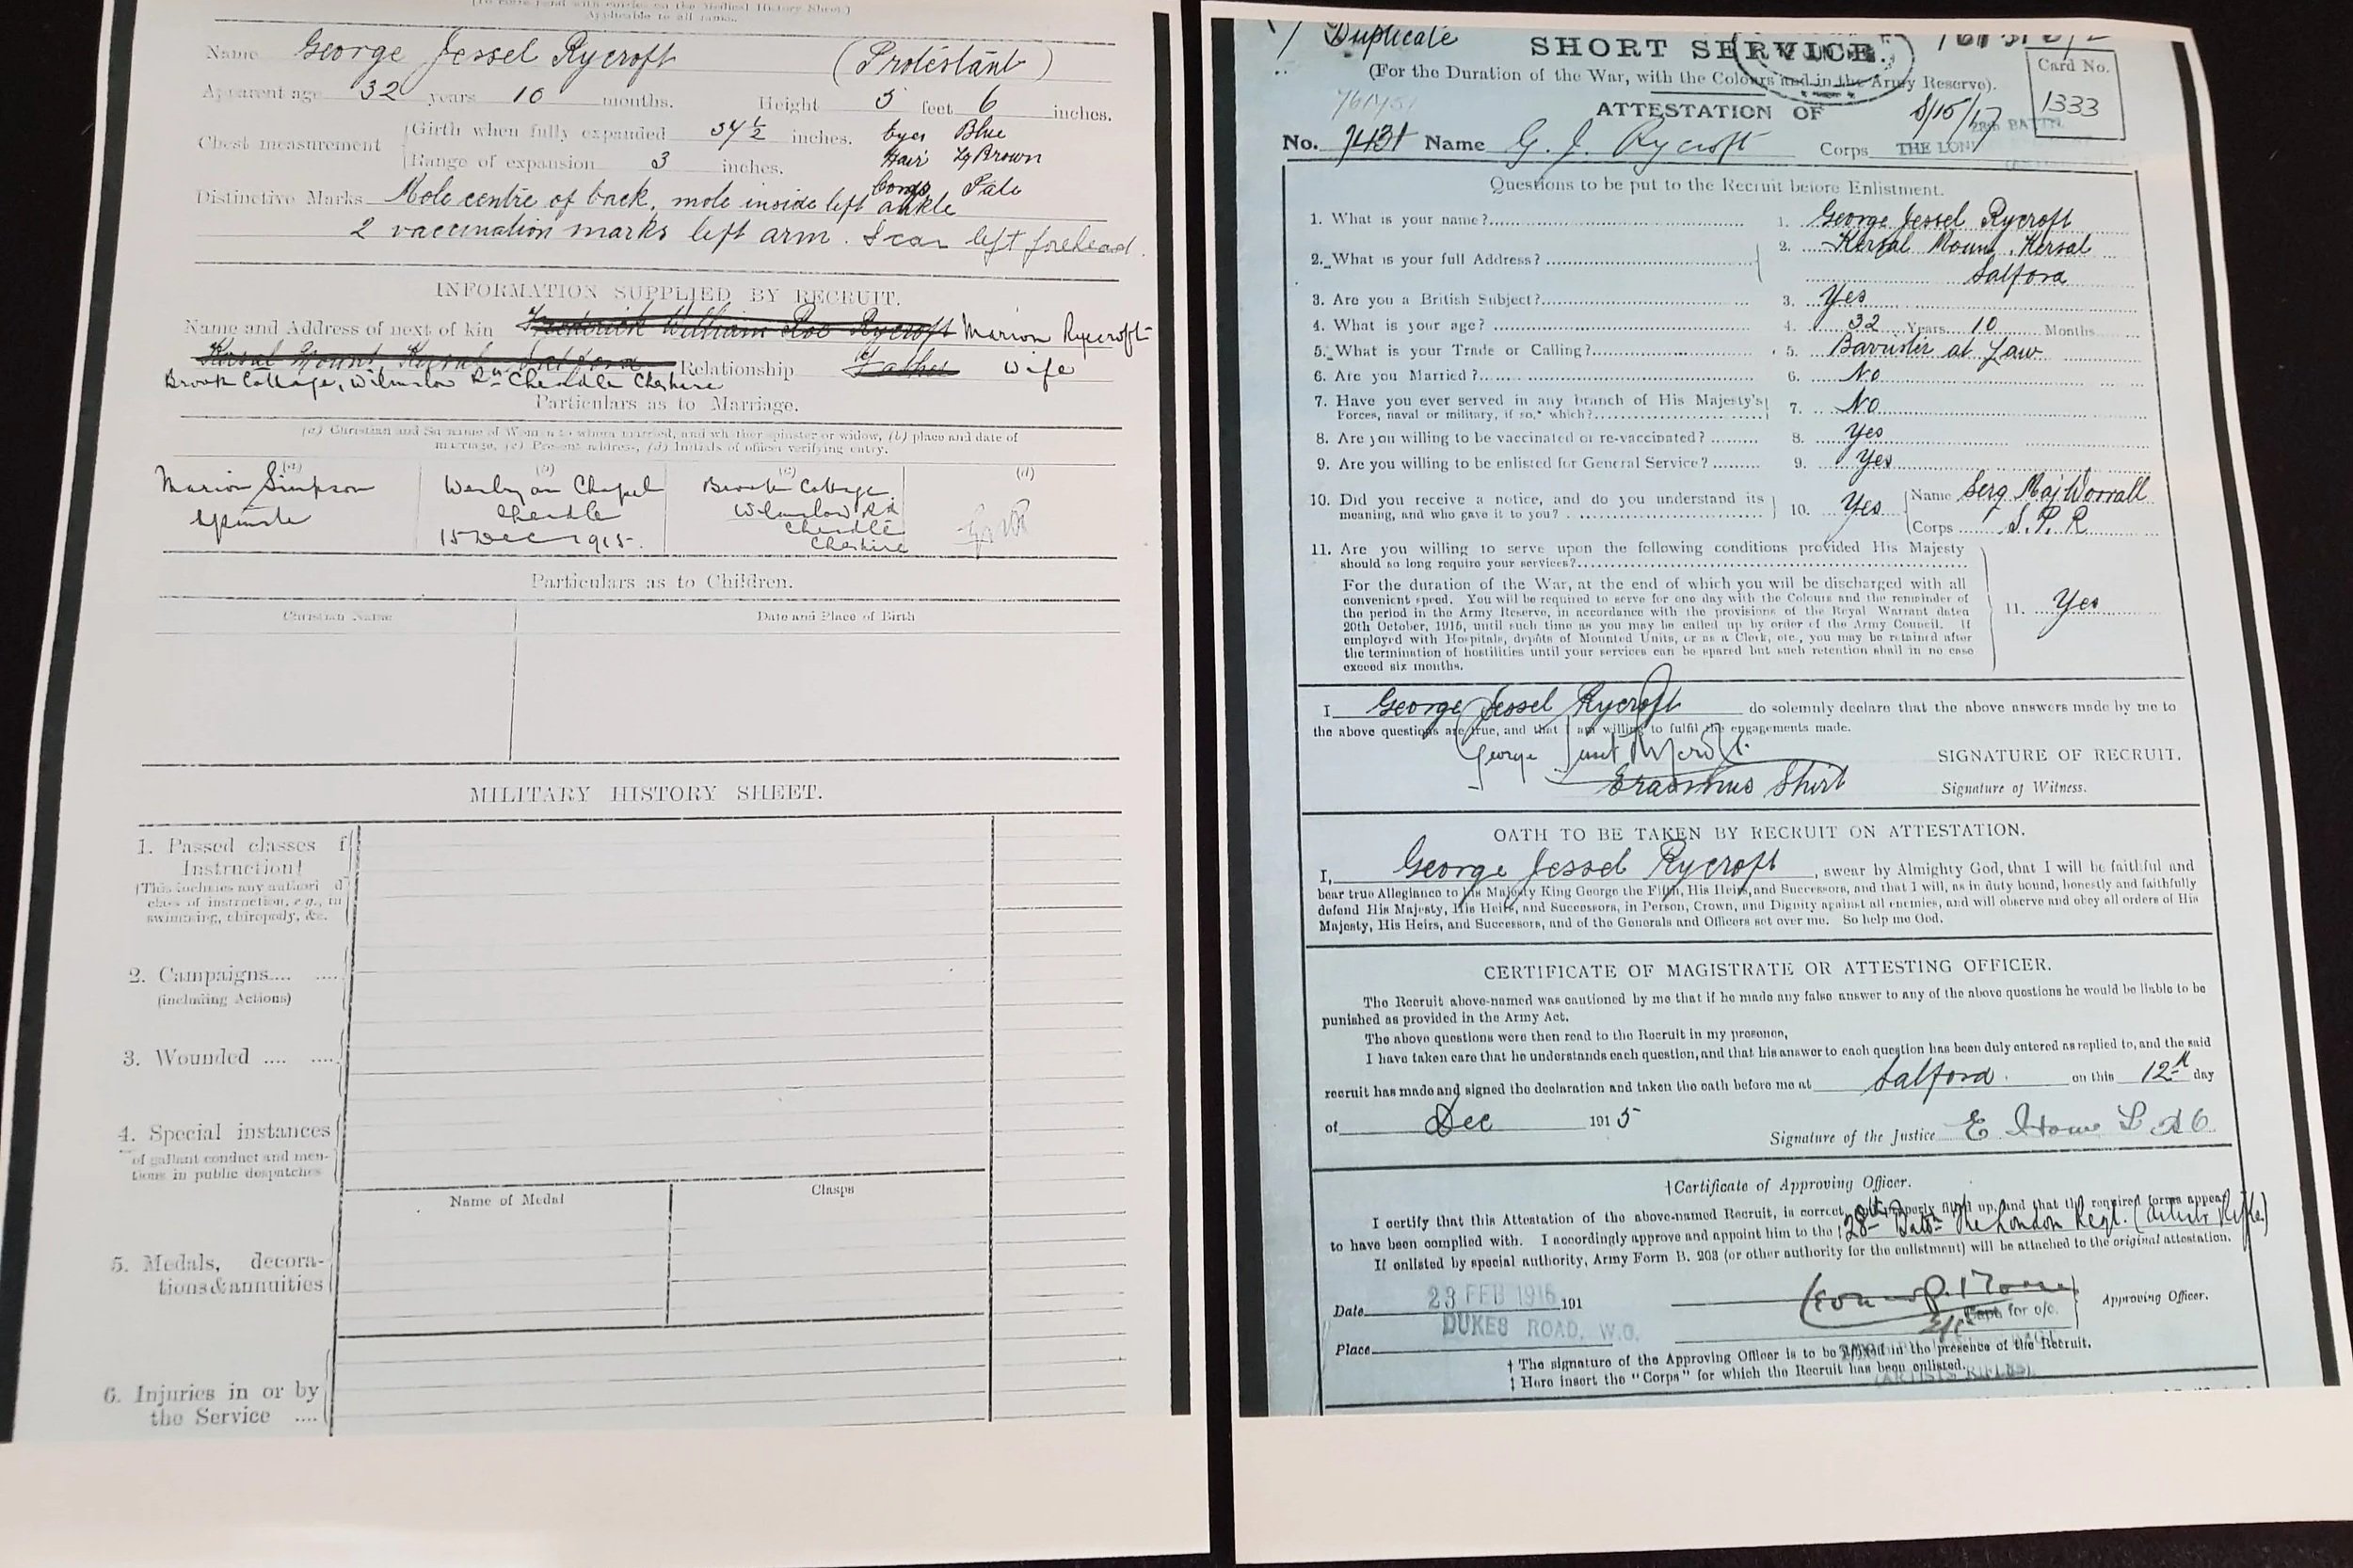 Applicable to all ranks.
Name George Jessel Rycroft (Protestant)
Apparent age 32 years 10 months. Height 5 feet 6 inches.
Chest measurement
Girth when fully expanded 34½ inches. Eyes Blue
Range of expansion 3 inches. Hair Lg Brown
Comp Pale
Distinctive Marks Mole centre of back, mole inside left ankle
2 vaccination marks left arm. Scar left forehead.
INFORMATION SUPPLIED BY RECRUIT.
Name and Address of next of kin Frederick William Roe Rycroft Marion Rycroft
Kersal Mount Kersal Salford Relationship Father Wife
Brook Cottage, Wilmslow Rd Cheadle Cheshire
Particulars as to Marriage.
(a) Christian and Surname of Woman to whom married, and whether spinster or widow, (b) place and date of
marriage, (c) Present address, (d) Initials of officer verifying entry.
(a) (b) (c) (d)
Marion Simpson Wesleyan Chapel Brook Cottage
Spinster Cheadle Wilmslow Rd
15 Dec 1915. Cheadle
Cheshire
Particulars as to Children.
Christian Name Date and Place of Birth
MILITARY HISTORY SHEET.
1. Passed classes f
Instruction†
(This includes any authori d
class of instruction, e.g., in
swimming, chiropody, &c.
2. Campaigns.... ....
(including Actions)
3. Wounded .... ....
4. Special instances
of gallant conduct and men-
tions in public despatches
Name of Medal Clasps
5. Medals, decora-
tions & annuities
6. Injuries in or by
the Service ....
Duplicate
SHORT SERVICE.
(For the Duration of the War, with the Colours and in the Army Reserve).
Card No.
1333
761451
ATTESTATION OF
8/15/17
28th BATTN.
No. 7431 Name G. J. Rycroft Corps THE LON
Questions to be put to the Recruit before Enlistment.
1. What is your name? 1. George Jessel Rycroft
2. What is your full Address? 2. Kersal Mount, Kersal
Salford
3. Are you a British Subject? 3. Yes
4. What is your age? 4. 32 Years 10 Months
5. What is your Trade or Calling? 5. Barrister at Law
6. Are you Married? 6. No
7. Have you ever served in any branch of His Majesty's
Forces, naval or military, if so,* which? 7. No
8. Are you willing to be vaccinated or re-vaccinated? 8. Yes
9. Are you willing to be enlisted for General Service? 9. Yes
10. Did you receive a notice, and do you understand its
meaning, and who gave it to you? 10. Yes Name Serg Maj Worrall
Corps S.P.R
11. Are you willing to serve upon the following conditions provided His Majesty
should so long require your services?
For the duration of the War, at the end of which you will be discharged with all
convenient speed. You will be required to serve for one day with the Colours and the remainder of
the period in the Army Reserve, in accordance with the provisions of the Royal Warrant dated
20th October, 1915, until such time as you may be called up by order of the Army Council. If
employed with Hospitals, depôts of Mounted Units, or as a Clerk, etc., you may be retained after
the termination of hostilities until your services can be spared but such retention shall in no case
exceed six months.
11. Yes
I George Jessel Rycroft do solemnly declare that the above answers made by me to
the above questions are true, and that I am willing to fulfil the engagements made.
George Jessel Rycroft. SIGNATURE OF RECRUIT.
Erasmus Shirt Signature of Witness.
OATH TO BE TAKEN BY RECRUIT ON ATTESTATION.
I, George Jessel Rycroft, swear by Almighty God, that I will be faithful and
bear true Allegiance to His Majesty King George the Fifth, His Heirs, and Successors, and that I will, as in duty bound, honestly and faithfully
defend His Majesty, His Heirs, and Successors, in Person, Crown, and Dignity against all enemies, and will observe and obey all orders of His
Majesty, His Heirs, and Successors, and of the Generals and Officers set over me. So help me God.
CERTIFICATE OF MAGISTRATE OR ATTESTING OFFICER.
The Recruit above-named was cautioned by me that if he made any false answer to any of the above questions he would be liable to be
punished as provided in the Army Act.
The above questions were then read to the Recruit in my presence,
I have taken care that he understands each question, and that his answer to each question has been duly entered as replied to, and the said
recruit has made and signed the declaration and taken the oath before me at Salford. on this 12th day
of Dec 1915
Signature of the Justice E
†Certificate of Approving Officer.
I certify that this Attestation of the above-named Recruit, is correct, and properly filled up, and that the required forms appear
to have been complied with. I accordingly approve and appoint him to the ‡28th Battn The London Regt. (Artists Rifles)
If enlisted by special authority, Army Form B. 203 (or other authority for the enlistment) will be attached to the original attestation.
Date 23 FEB 1916 191
Capt. for o/c. Approving Officer.
Place DUKES ROAD, W.C.
† The signature of the Approving Officer is to be affixed in the presence of the Recruit.
‡ Here insert the "Corps" for which the Recruit has been enlisted.
(ARTISTS RIFLES)